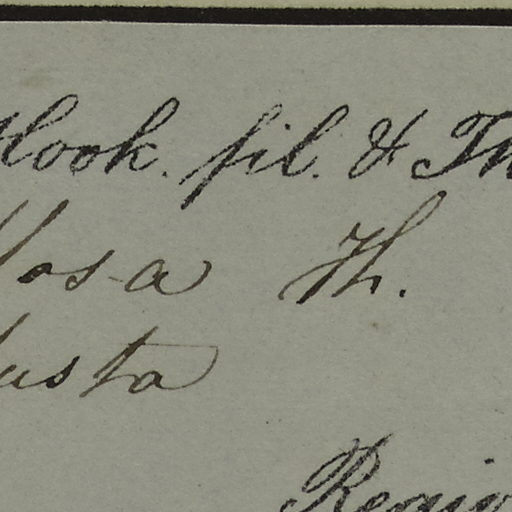 Hook. fil. & Th
losa Th.
usta
Regio